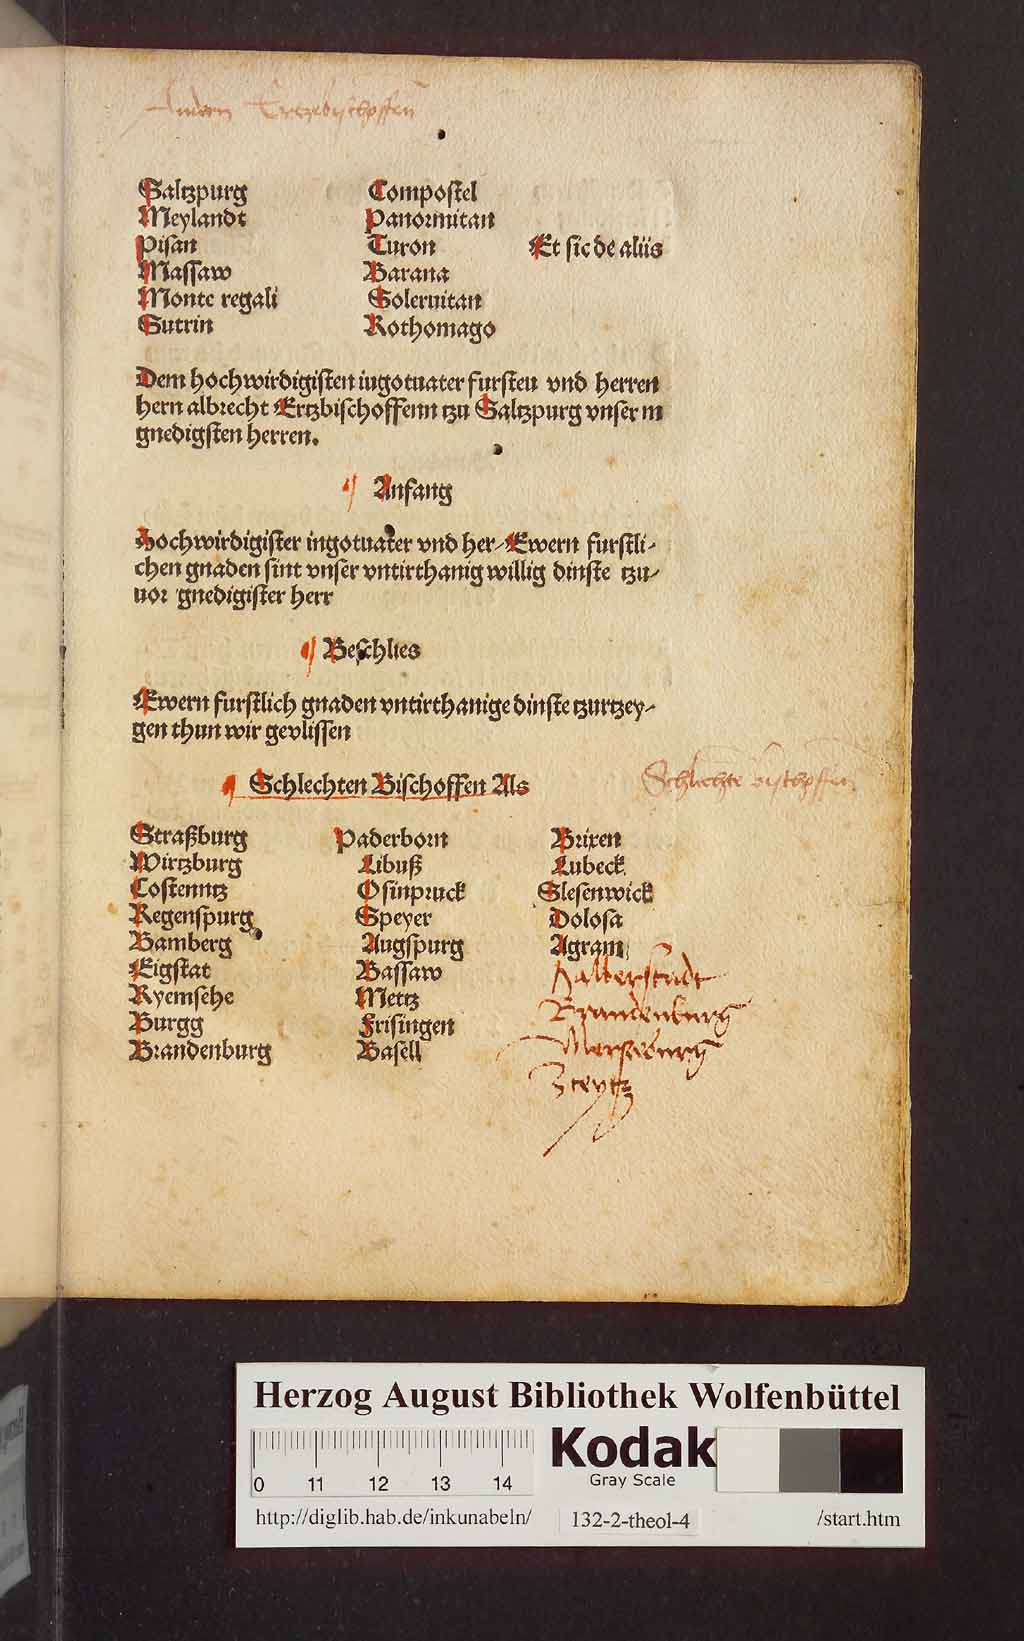 Andern Ertzebischoffen
Saltzpurg
Meylandt
Pisan
Massaw
Monte regali
Sutrin
Compostel
Panormitan
Turon
Barana
Solernitan
Rothomago
Et sic de aliis
Dem hochwirdigisten ingotuater fursten vnd herren
hern albrecht Ertzbischoffenn tzu Saltzpurg vnser m
gnedigsten herren.
Anfang
Hochwirdigister ingotuater vnd her/ Ewern furstli-
chen gnaden sint vnser vntirthanig willig dinste tzu-
uor gnedigister herr
Beschlies
Ewern furstlich gnaden vntirthanige dinste tzurtzey-
gen thun wir gevlissen
Schlechten Bischoffen Als
Schlechte bischoffen
Straßburg
Wirtzburg
Costenntz
Regenspurg
Bamberg
Eigstat
Ryemsehe
Burgg
Brandenburg
Paderborn
Libuß
Osinpruck
Speyer
Augspurg
Bassaw
Mettz
Frisingen
Basell
Brixen
Lubeck
Slesenwick
Dolosa
Agram
Halberstadt
Brandenburg
Merseburg
Zceytz
Herzog August Bibliothek Wolfenbüttel
0 11 12 13 14
Kodak
Gray Scale
http://diglib.hab.de/inkunabeln/ 132-2-theol-4 /start.htm